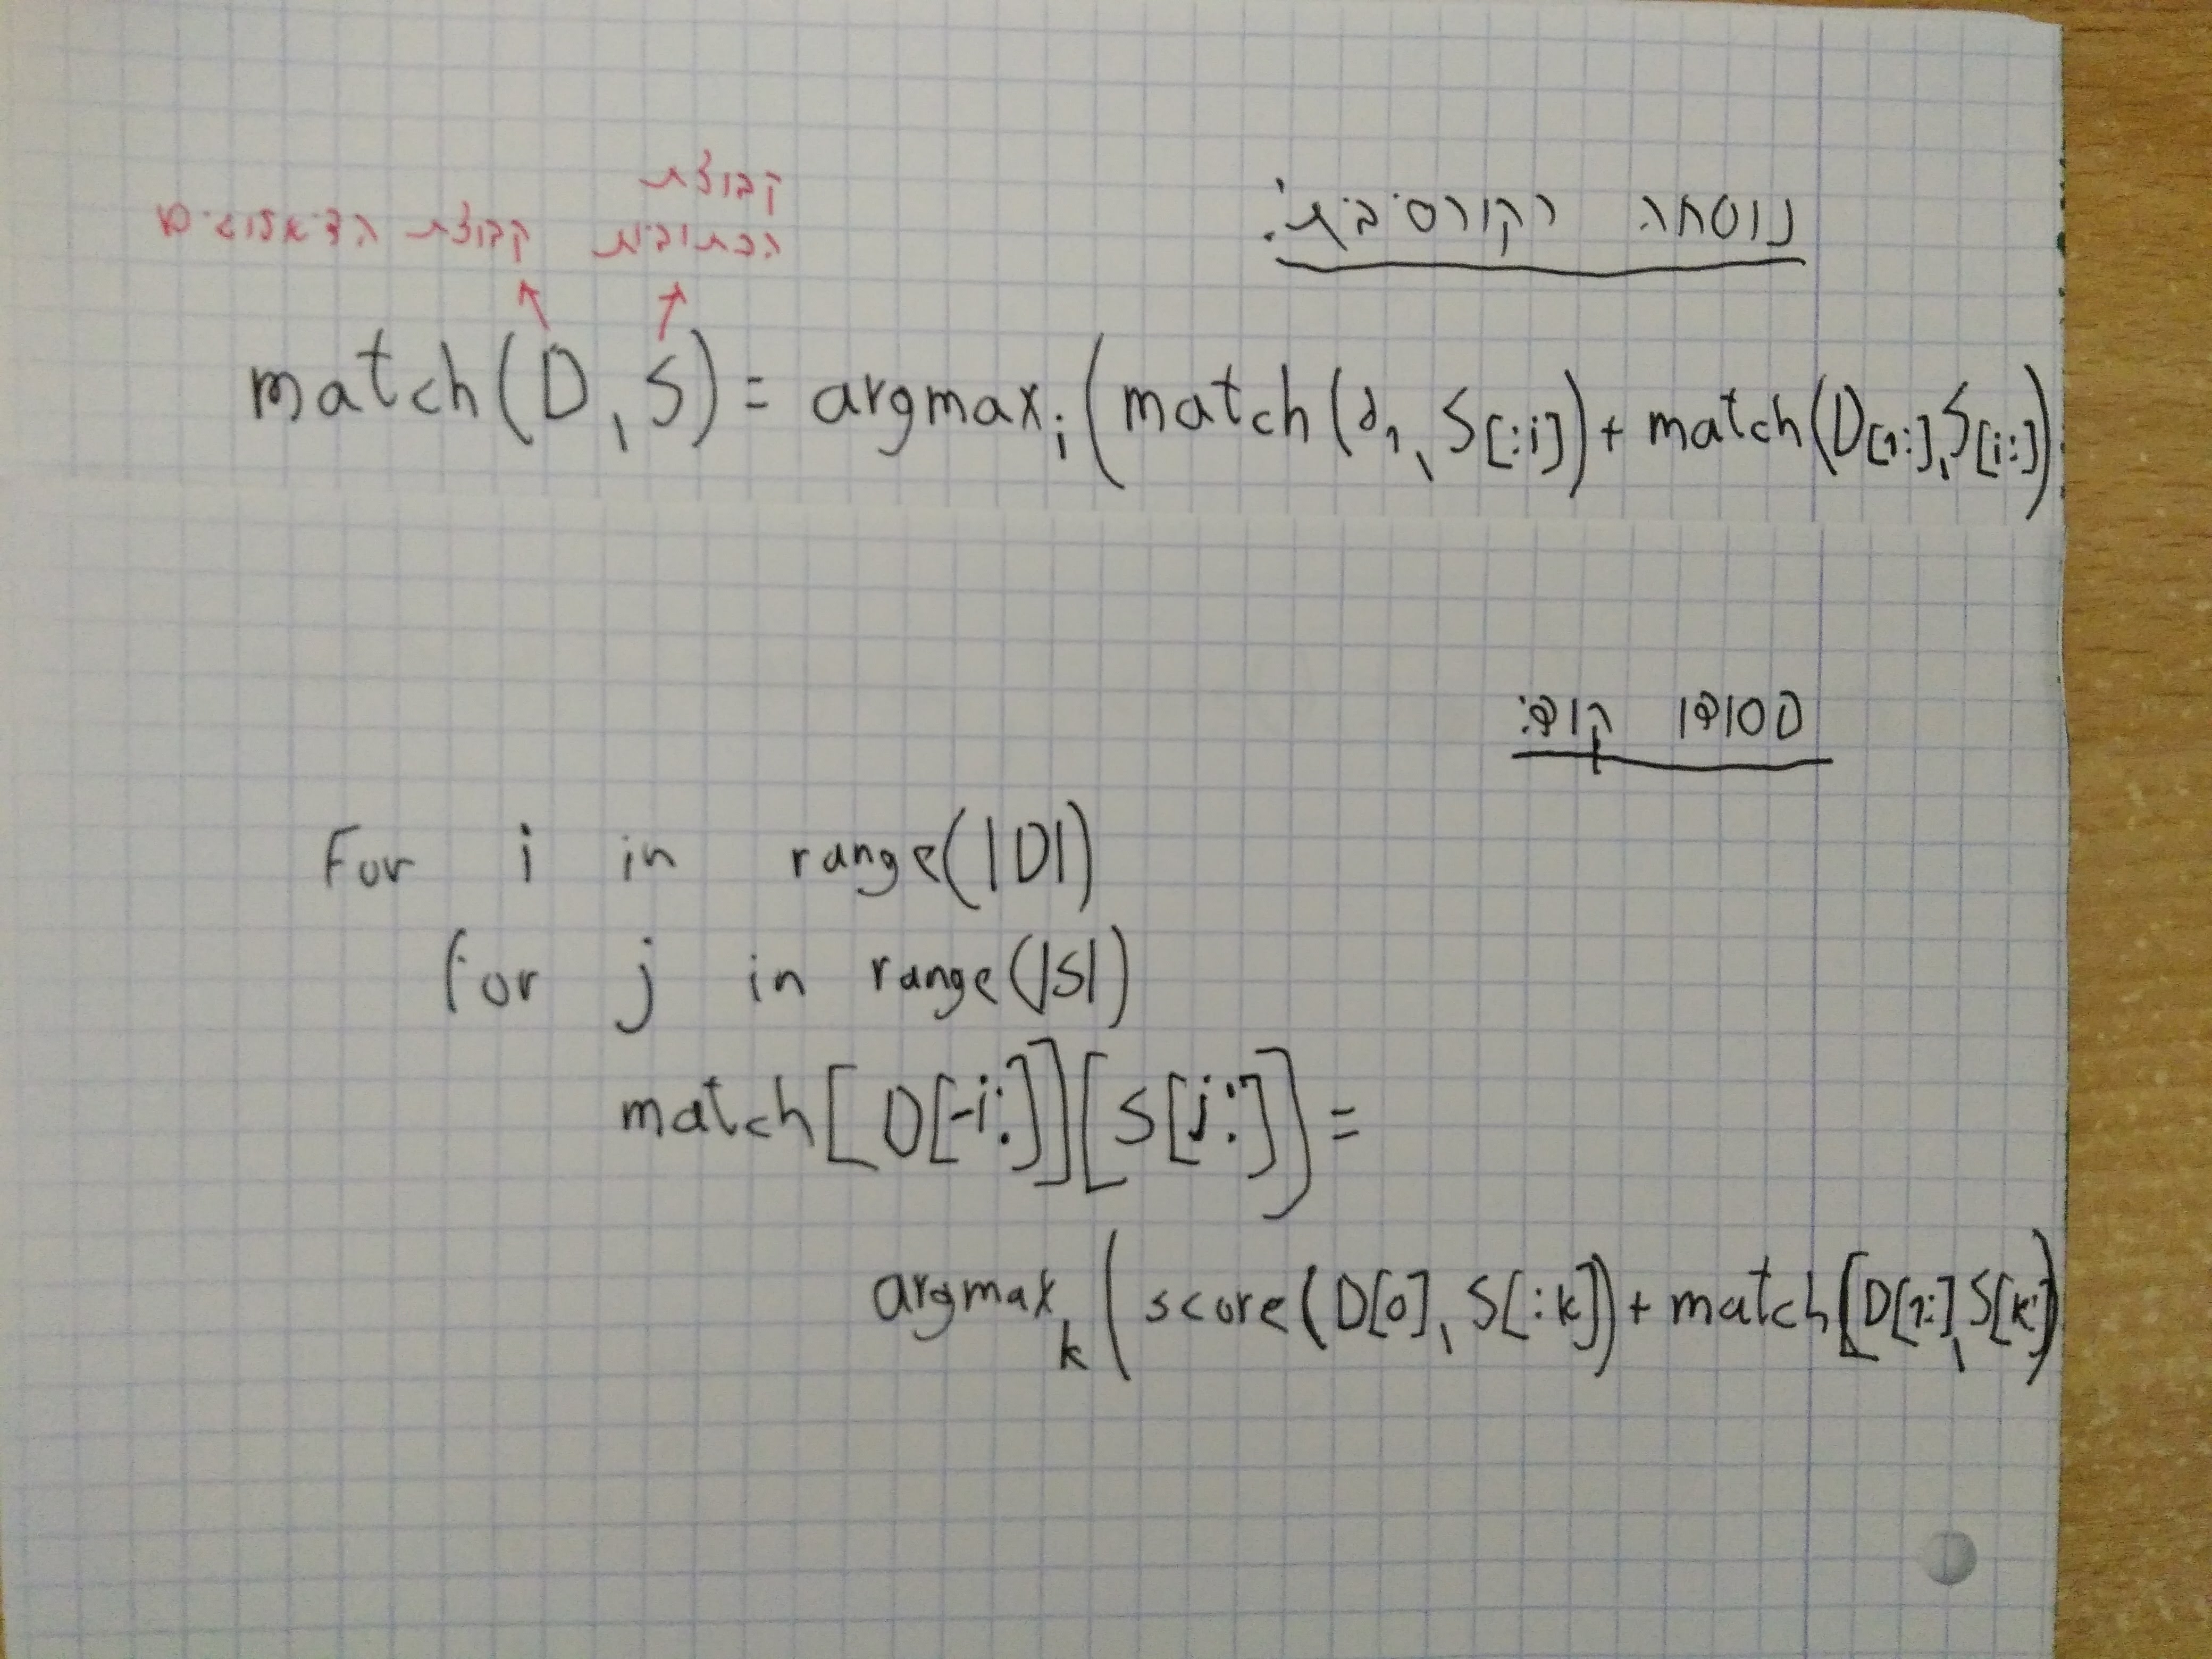 נוסחה רקורסיבית:
קבוצת
הכתוביות
קבוצת הדיאלוגים
match(D,S) = argmaxᵢ(match(d₁, S[:i]) + match(D[1:], S[i:])
פסודו קוד:
For i in range(|D|)
for j in range(|S|)
match[D[-i:]][S[j:]] =
argmaxₖ(score(D[0], S[:k]) + match[D[1:], S[k:])